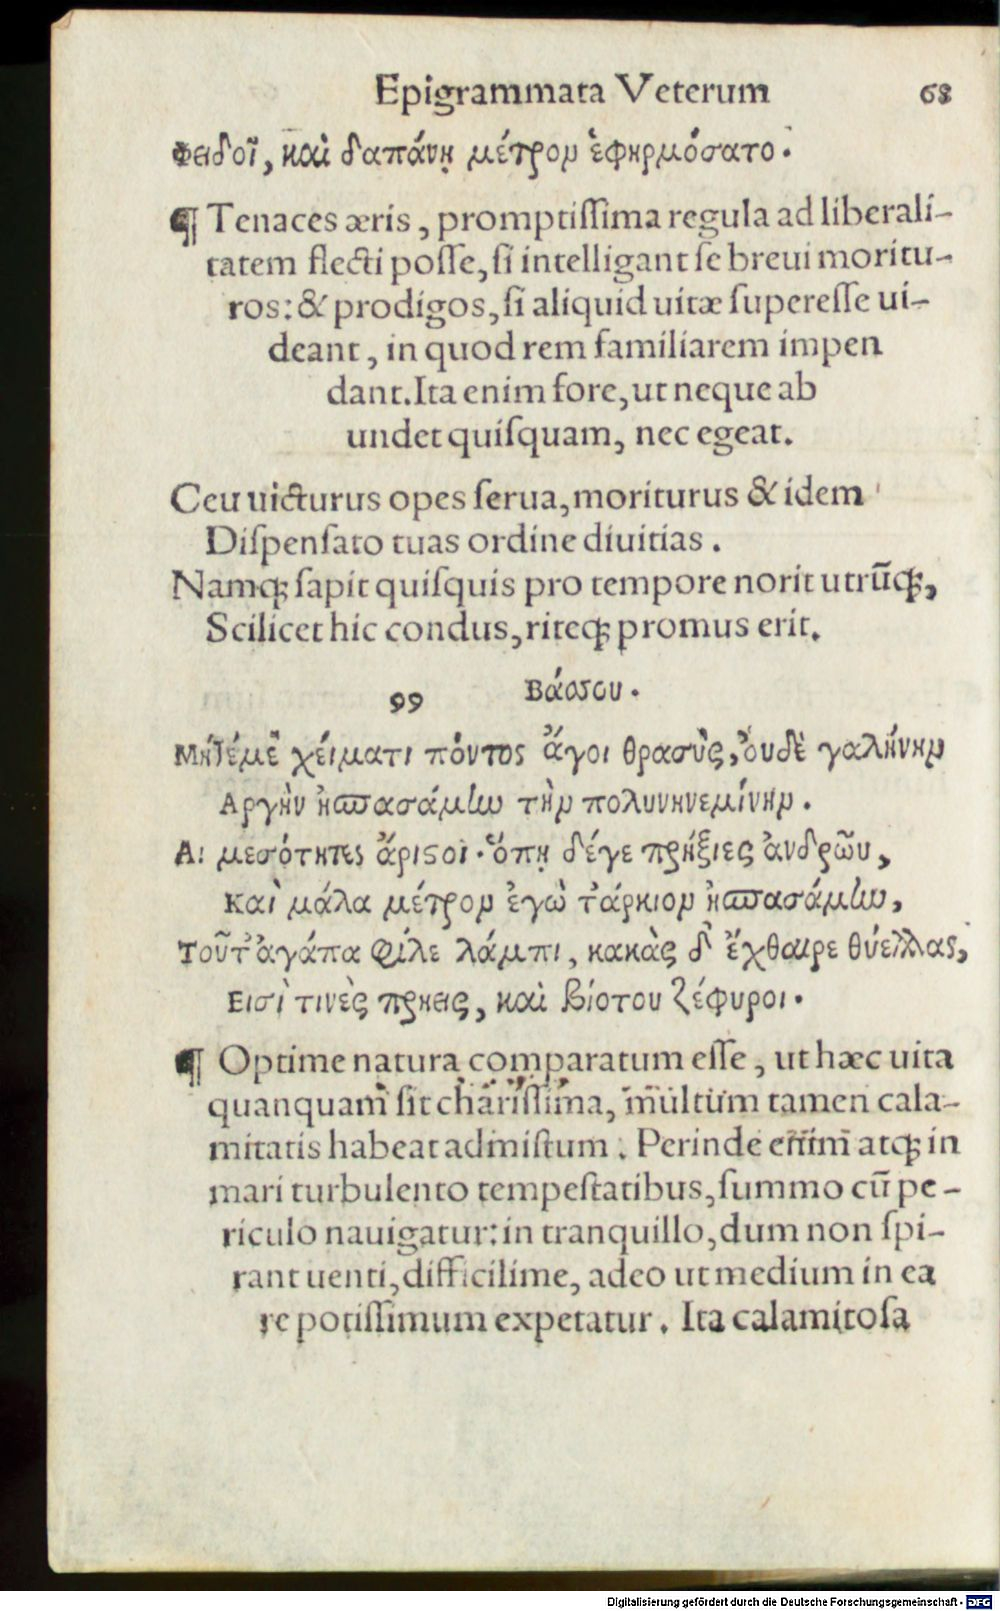 Epigrammata Veterum 68
Φειδοῖ, καὶ δαπάνῃ μέτρον ἐφηρμόσατο.
¶ Tenaces æris, promptiſſima regula ad liberali-
tatem flecti poſſe, ſi intelligant ſe breui moritu-
ros: & prodigos, ſi aliquid uitæ ſupereſſe ui-
deant, in quod rem familiarem impen
dant. Ita enim fore, ut neque ab
undet quiſquam, nec egeat.
Ceu uicturus opes ſerua, moriturus & idem
Diſpenſato tuas ordine diuitias.
Namqꝫ ſapit quiſquis pro tempore norit utrūqꝫ,
Scilicet hic condus, riteqꝫ promus erit.
99 Βάσσου.
Μήτέμε χείματι πόντος ἄγοι θρασὺς, ὀυδὲ γαλήνην
Αργὴν ἠσπασάμην τὴν πολυνηνεμίην.
Αἱ μεσότητες ἄρισοι. ὅπῃ δέγε πρήξιες ἀνδρῶν,
Καὶ μάλα μέτρον ἐγὼ τἄρκιον ἠσπασάμην,
Τοῦτ' ἀγάπα φίλε λάμπι, κακὰς δ' ἔχθαιρε θύελλας,
Εισί τινὲς πρηεῖς, καὶ βίοτου ζέφυροι.
¶ Optime natura comparatum eſſe, ut hæc uita
quanquam ſit chariſſima, multum tamen cala-
mitatis habeat admiſtum. Perinde enim atqꝫ in
mari turbulento tempeſtatibus, ſummo cū pe-
riculo nauigatur: in tranquillo, dum non ſpi-
rant uenti, difficilime, adeo ut medium in ea
re potiſſimum expetatur. Ita calamitoſa
Digitalisierung gefördert durch die Deutsche Forschungsgemeinschaft - DFG